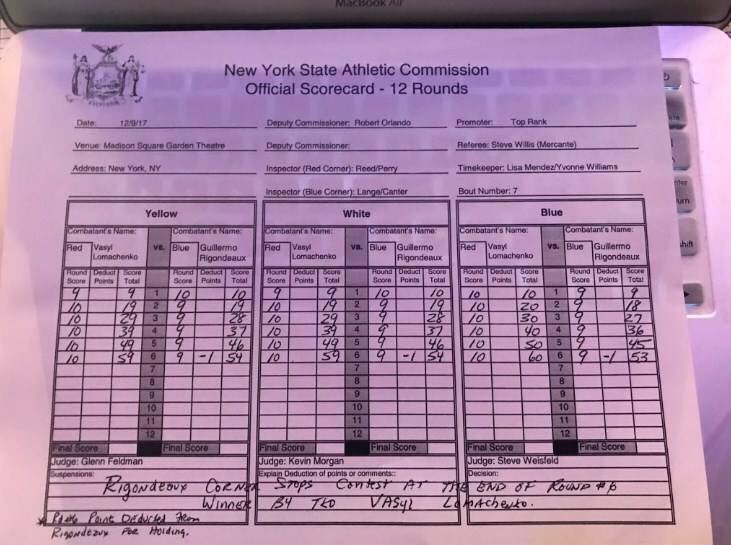 MacBook Air
New York State Athletic Commission
Official Scorecard - 12 Rounds
Date: 12/9/17 Deputy Commissioner: Robert Orlando Promoter: Top Rank
Venue: Madison Square Garden Theatre Deputy Commissioner: Referee: Steve Willis (Mercante)
Address: New York, NY Inspector (Red Corner): Reed/Perry Timekeeper: Lisa Mendez/Yvonne Williams
Inspector (Blue Corner): Lange/Canter Bout Number: 7
Yellow White Blue
Combatant's Name: Combatant's Name: Combatant's Name: Combatant's Name: Combatant's Name: Combatant's Name:
Red Vasyl vs. Blue Guillermo Red Vasyl vs. Blue Guillermo Red Vasyl vs. Blue Guillermo
Lomachenko Rigondeaux Lomachenko Rigondeaux Lomachenko Rigondeaux
Round Deduct Score Round Deduct Score Round Deduct Score Round Deduct Score Round Deduct Score Round Deduct Score
Score Points Total Score Points Total Score Points Total Score Points Total Score Points Total Score Points Total
9 9 1 10 10 9 9 1 10 10 10 10 1 9 9
10 19 2 9 19 10 19 2 9 19 10 20 2 9 18
10 29 3 9 28 10 29 3 9 28 10 30 3 9 27
10 39 4 9 37 10 39 4 9 37 10 40 4 9 36
10 49 5 9 46 10 49 5 9 46 10 50 5 9 45
10 59 6 9 -1 54 10 59 6 9 -1 54 10 60 6 9 -1 53
7 7 7
8 8 8
9 9 9
10 10 10
11 11 11
12 12 12
Final Score Final Score Final Score Final Score Final Score Final Score
Judge: Glenn Feldman Judge: Kevin Morgan Judge: Steve Weisfeld
Suspensions: Explain Deduction of points or comments: Decision:
Rigondeaux Corner Stops Contest At The End of Round #6
Winner By TKO Vasyl Lomachenko.
* Point Deducted From
Rigondeaux For Holding.